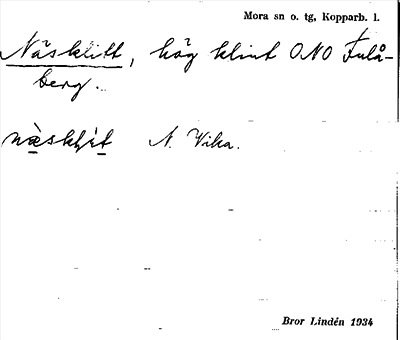 Mora sn o. tg, Kopparb. l.
Näsklitt, hög klint ONO Fulå-
berg.
N. Vika.
Bror Lindén 1934